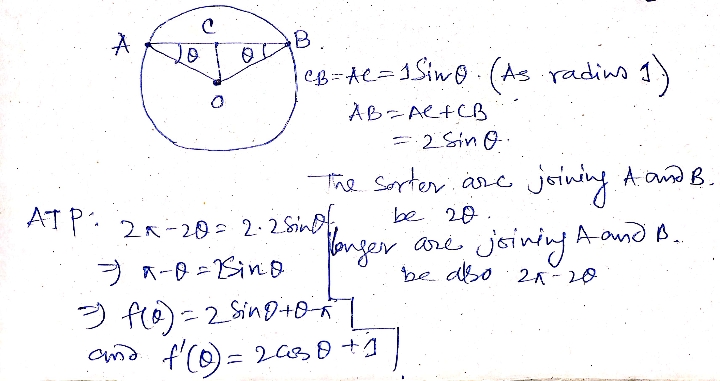 C
A B.
θ θ
O
CB = AC = 1 Sin θ. (As radius 1)
AB = AC + CB
= 2 Sin θ.
The sorter arc joining A and B.
be 2θ.
longer arc joining A and B.
be also 2π - 2θ
ATP: 2π - 2θ = 2. 2 Sin θ
⇒ π - θ = 2 Sin θ
⇒ f(θ) = 2 Sin θ + θ - π
and f'(θ) = 2 cos θ + 1